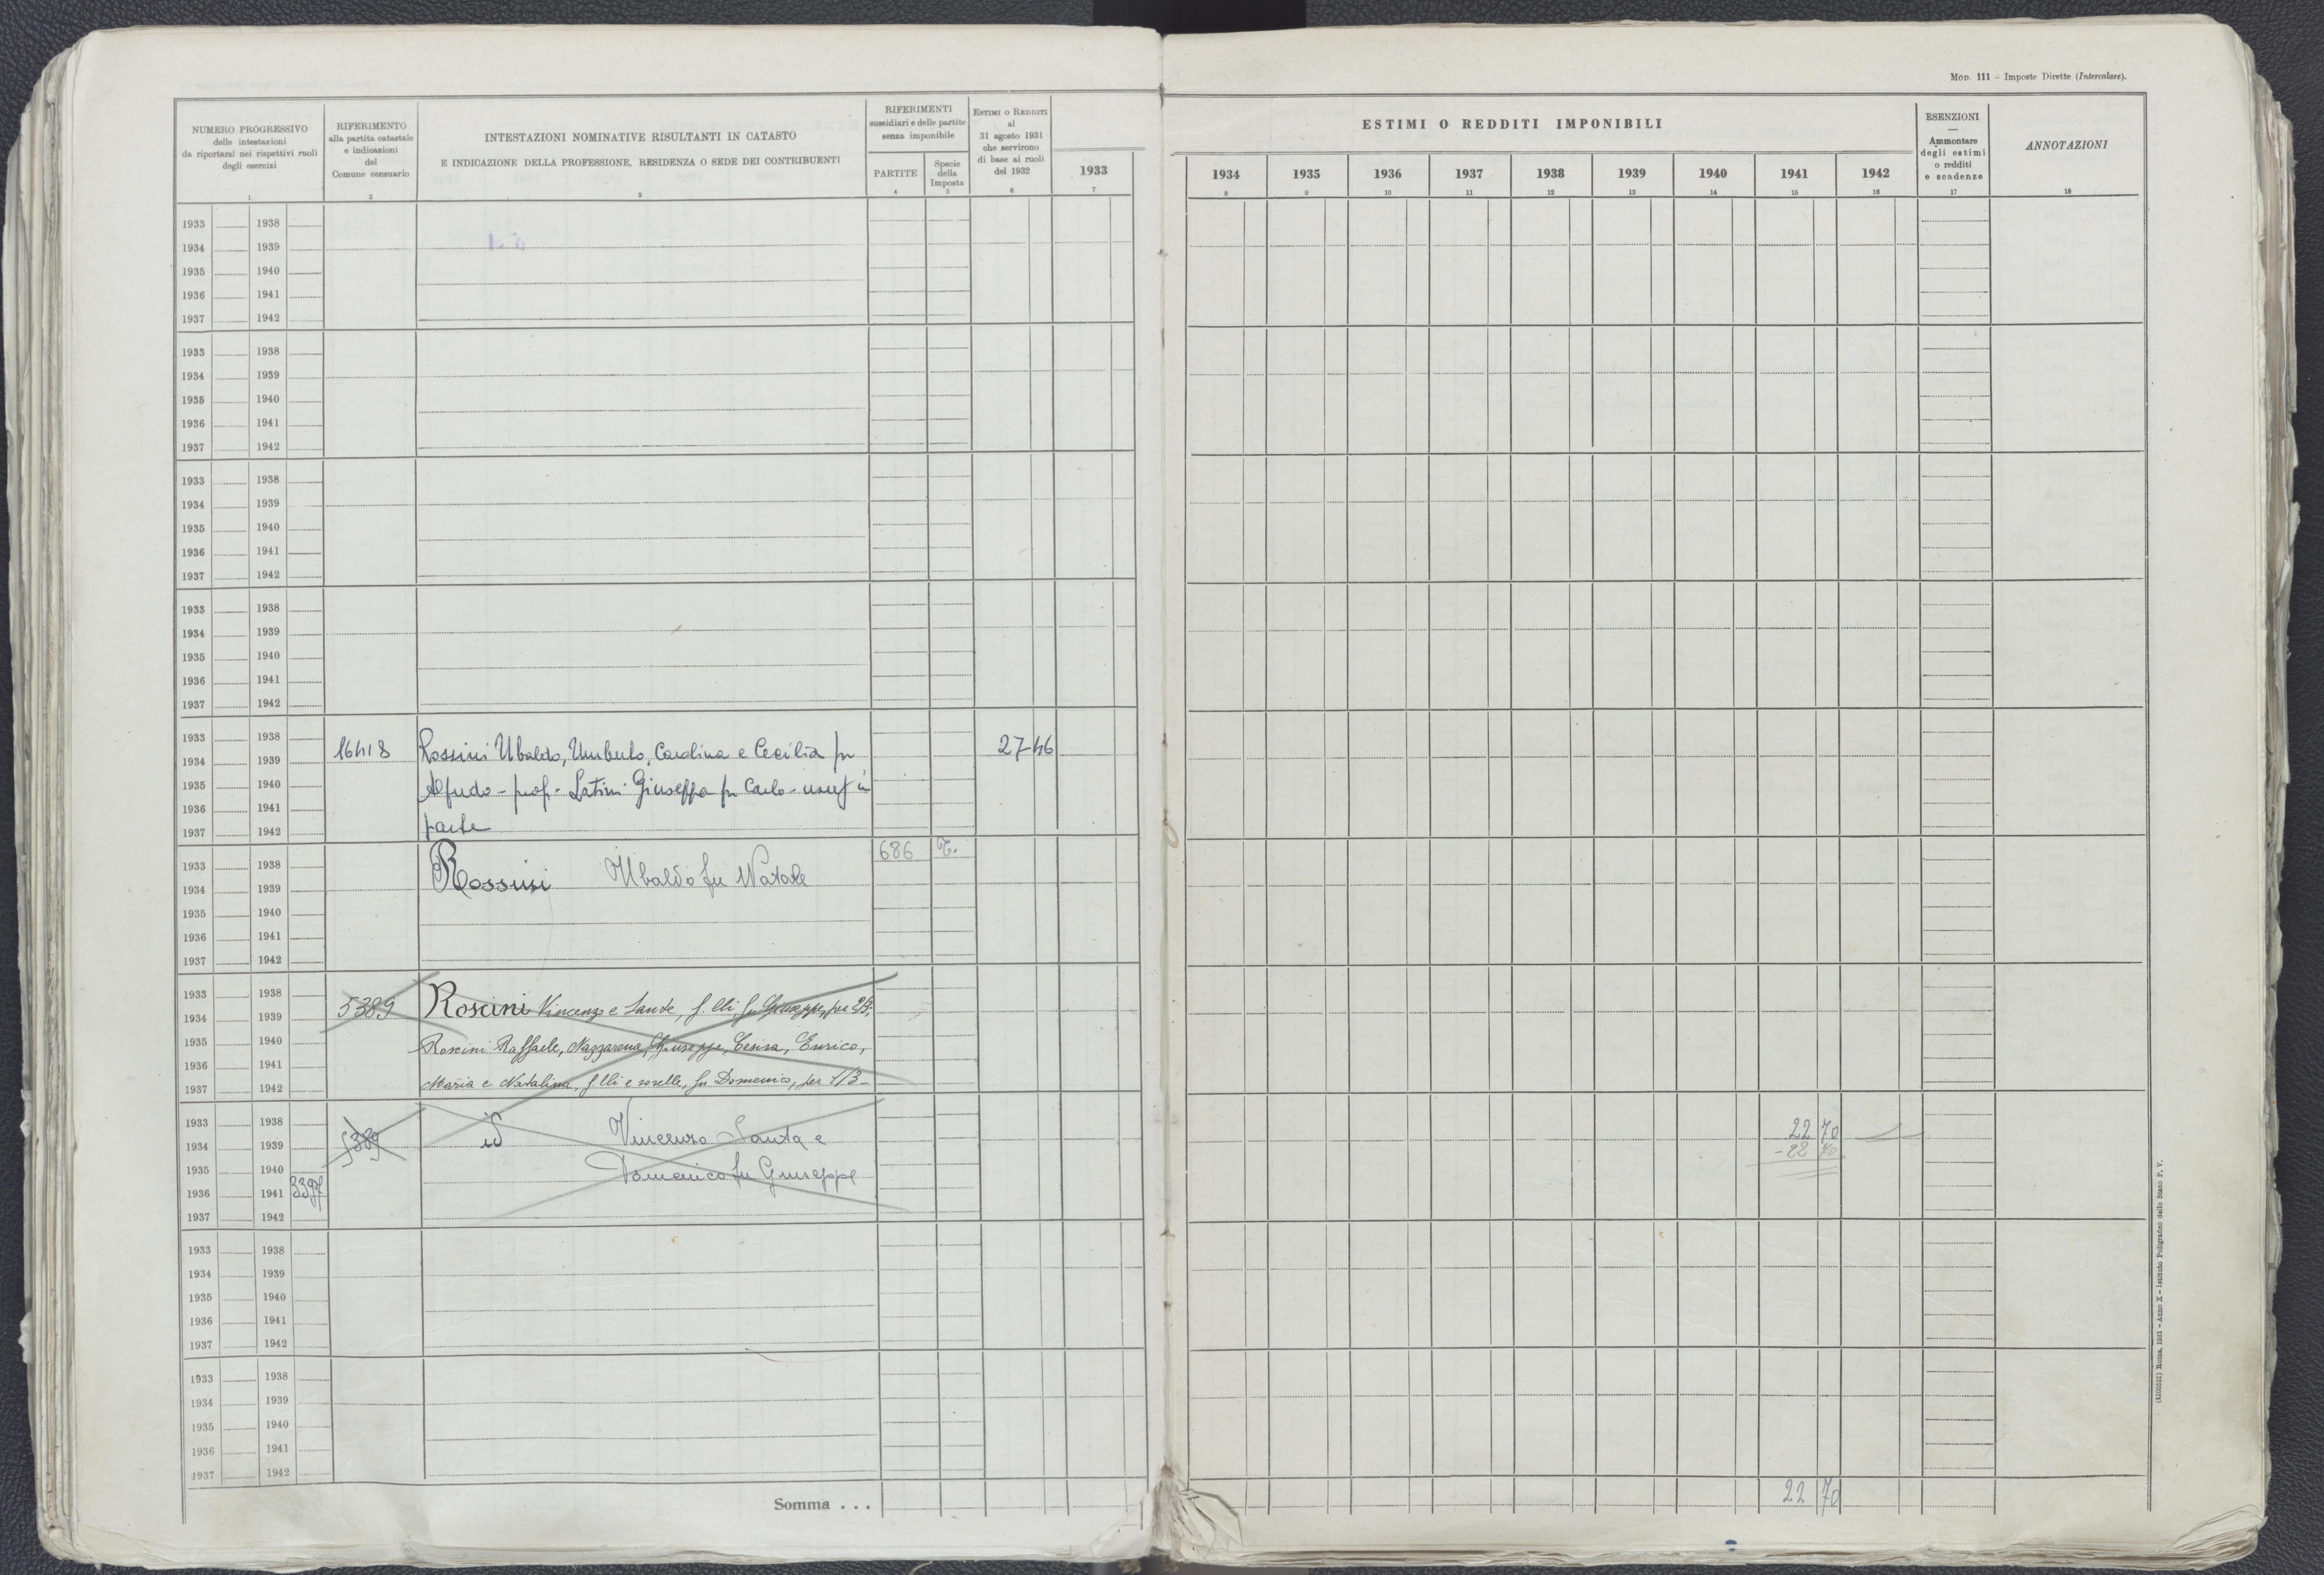 Mod. 111 - Imposte Dirette (Intercalare).
NUMERO PROGRESSIVO
delle intestazioni
da riportarsi nei rispettivi ruoli
degli esercizi
1
RIFERIMENTO
alla partita catastale
e indicazioni
del
Comune censuario
2
INTESTAZIONI NOMINATIVE RISULTANTI IN CATASTO
E INDICAZIONE DELLA PROFESSIONE, RESIDENZA O SEDE DEI CONTRIBUENTI
3
RIFERIMENTI
sussidiari e delle partite
senza imponibile
PARTITE
4
Specie
della
Imposta
5
ESTIMI O REDDITI
al
31 agosto 1931
che servirono
di base ai ruoli
del 1932
6
1933
7
ESTIMI O REDDITI IMPONIBILI
1934 1935 1936 1937 1938 1939 1940 1941 1942
8 9 10 11 12 13 14 15 16
ESENZIONI
—
Ammontare
degli estimi
o redditi
e scadenze
17
ANNOTAZIONI
18
1933 1938
1934 1939
1935 1940
1936 1941
1937 1942
1933 1938
1934 1939
1935 1940
1936 1941
1937 1942
1933 1938
1934 1939
1935 1940
1936 1941
1937 1942
1933 1938
1934 1939
1935 1940
1936 1941
1937 1942
1933 1938
1934 1939
1935 1940
1936 1941
1937 1942
16418 Rossini Ubaldo, Umberto, Carolina e Cecilia fu 27 46
Alfredo - prop. - Latini Giuseppa fu Carlo - usuf in
parte
1933 1938
1934 1939
1935 1940
1936 1941
1937 1942
Rossini Ubaldo fu Natale 686
1933 1938
1934 1939
1935 1940
1936 1941
1937 1942
5389 Roscini Vincenzo e Sante, f.lli, fu Giuseppe, per 2/3;
Roscini Raffaele, Nazzarena, Giuseppe, Cesira, Enrico,
Maria e Natalina, f.lli e sorelle, fu Domenico, per 1/3
1933 1938
1934 1939
1935 1940
1936 1941 3397
1937 1942
5389 id Vincenzo Santa e 22 70
Domenico fu Giuseppe - 22 70
1933 1938
1934 1939
1935 1940
1936 1941
1937 1942
1933 1938
1934 1939
1935 1940
1936 1941
1937 1942
Somma . . . 22 70
Roma, 1931 - Anno X - Istituto Poligrafico dello Stato P. V.